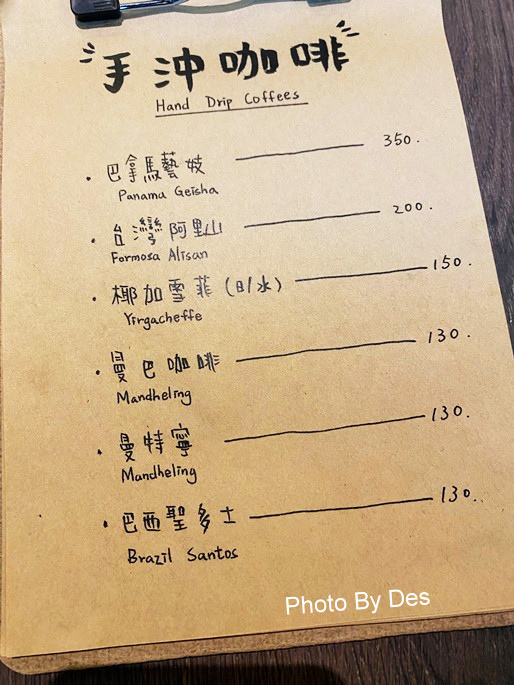 手沖咖啡
Hand Drip Coffees
巴拿馬藝妓 350.
Panama Geisha
台灣阿里山 200.
Formosa Alisan
椰加雪菲(日/水) 150.
Yirgacheffe
曼巴咖啡 130.
Mandheling
曼特寧 130.
Mandheling
巴西聖多士 130.
Brazil Santos
Photo By Des